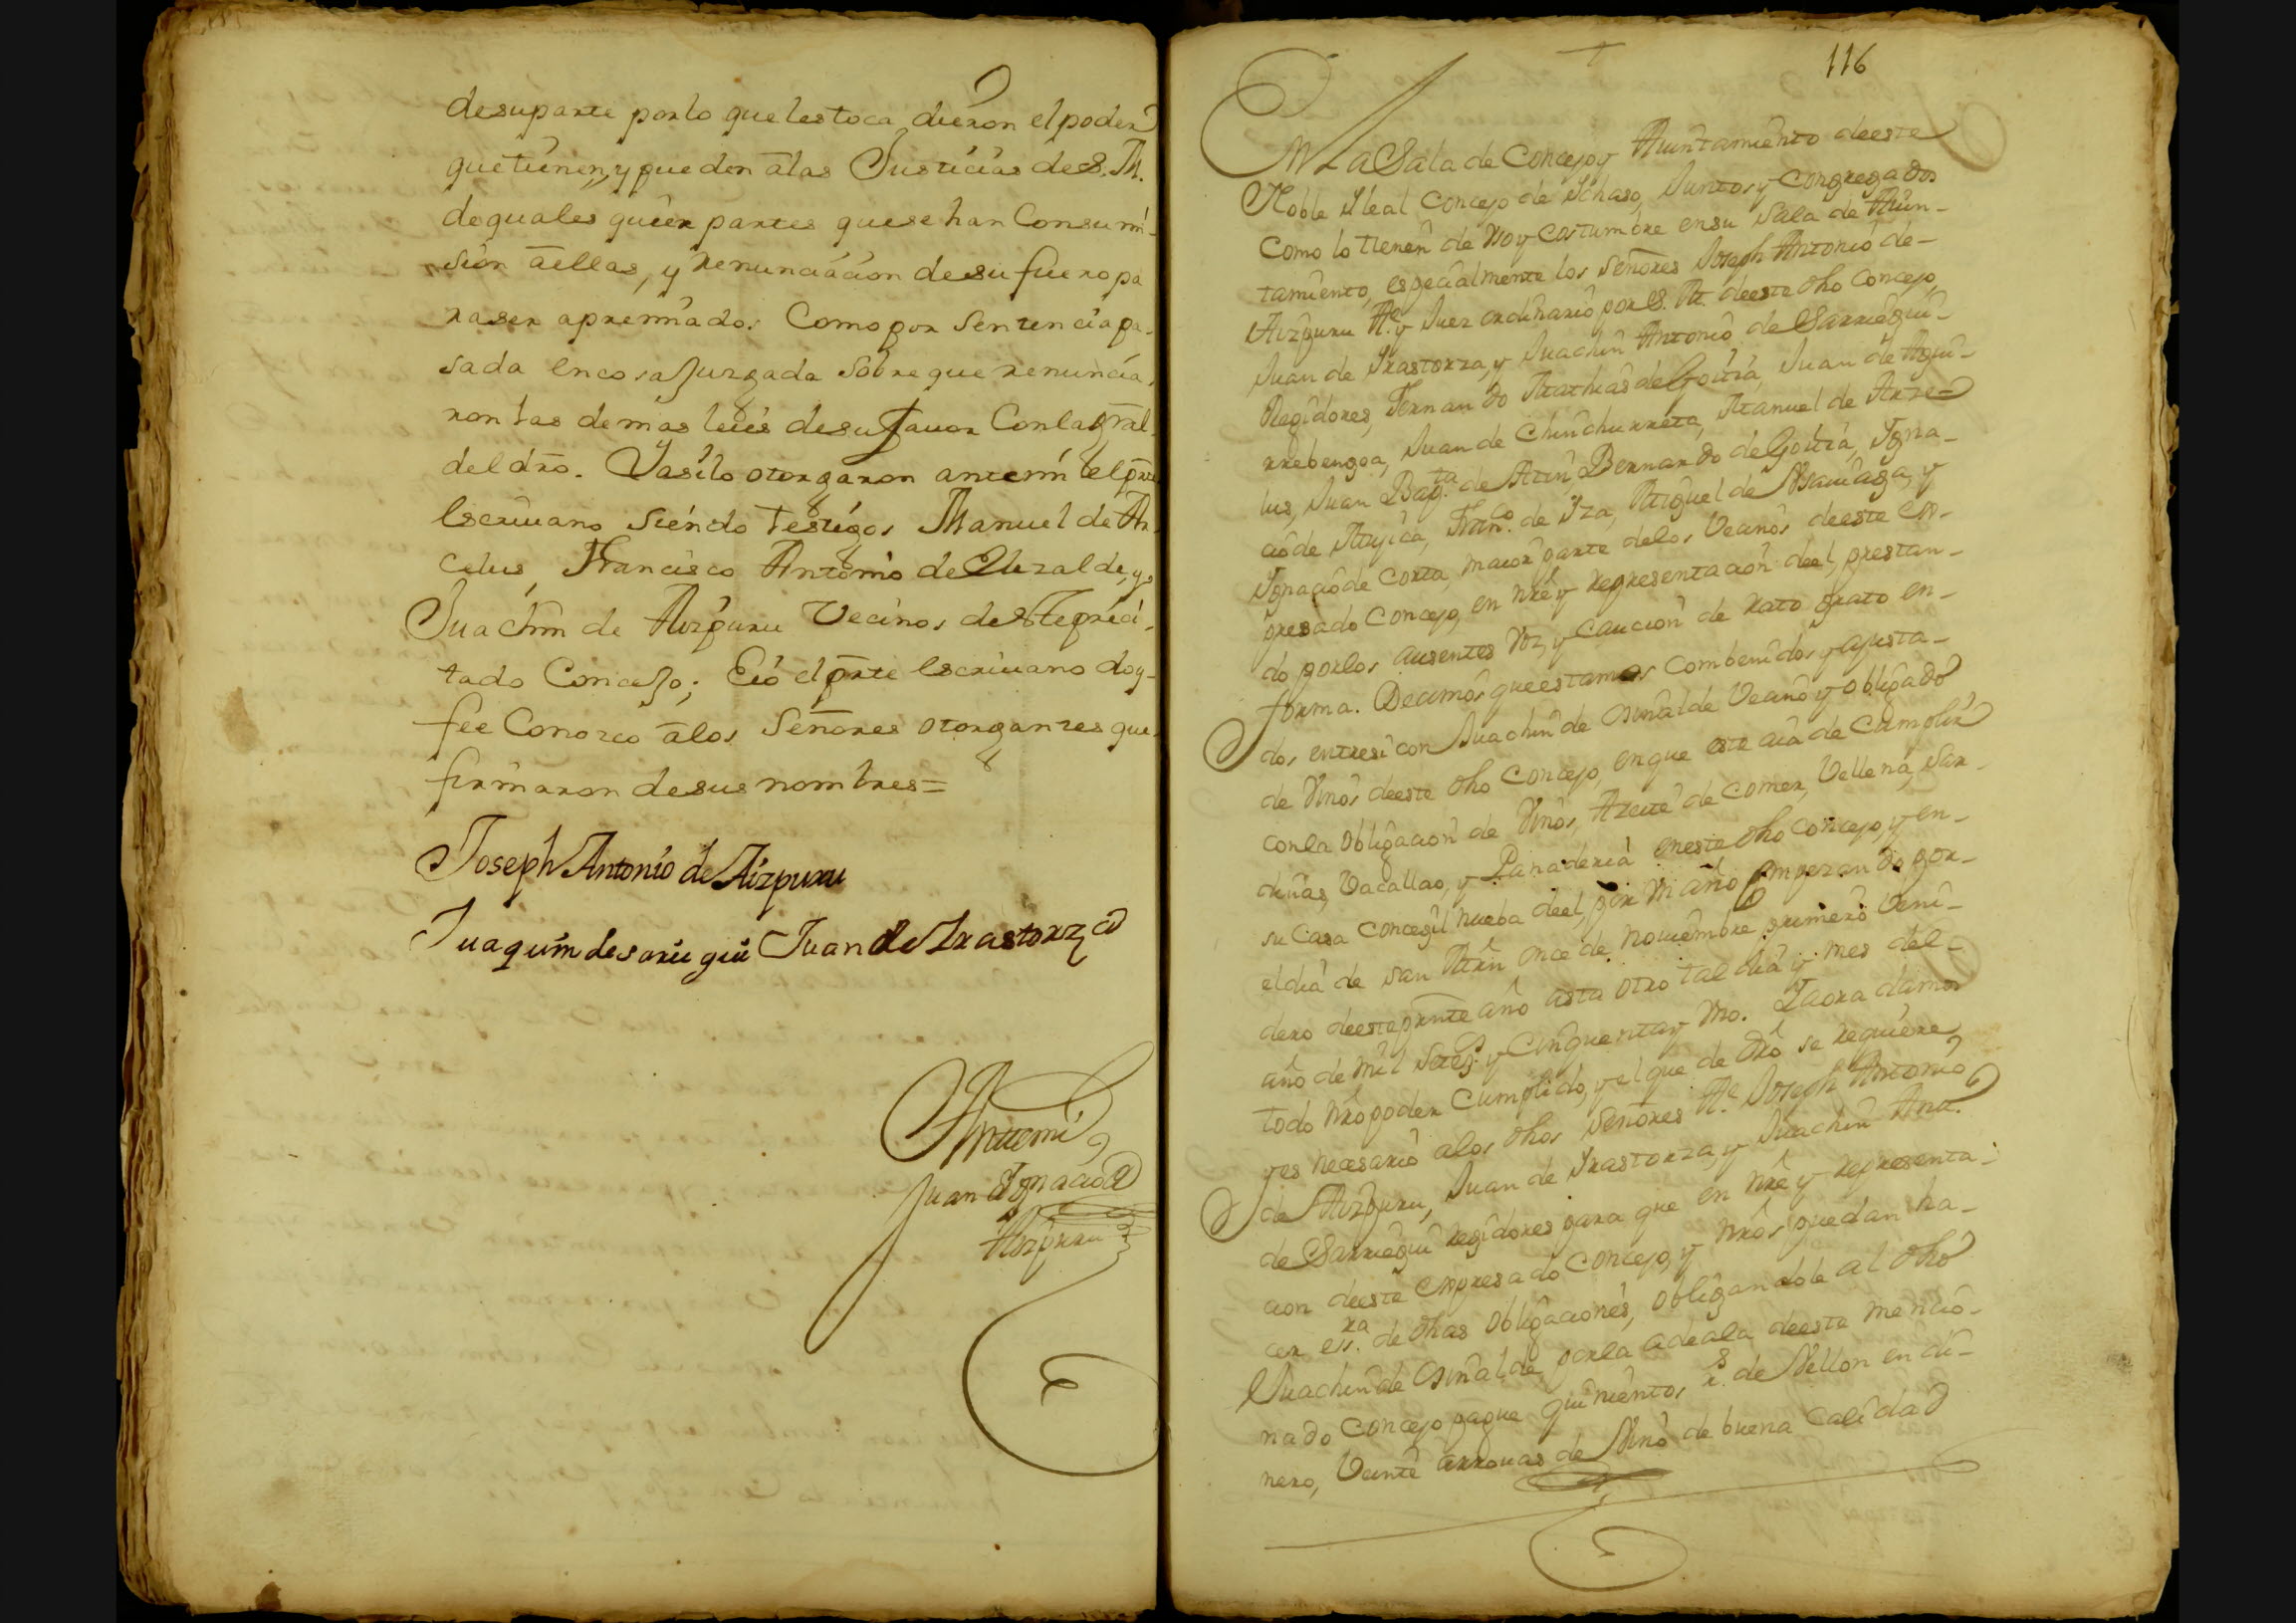 de su parte por lo que les toca dieron el poder
que tienen, y pueden â las Justicias de S. M.
de quales quier partes que se han Con sumi-
sion â ellas, y renunciacion de su fuero pa
ra ser apremiados Como por Sentencia pa-
sada en cosa Juzgada Sobre que renuncia-
ron las demas leies de su favor Con la gral
del dro. Y asi lo otorgaron ante mi el pnte
escriuano siendo testigos Manuel de Ar
celus, Francisco Antonio de Elizalde, y
Juachin de Aizpuru Vecinos de este preci-
tado Concejo; E io el pnte escriuano doy
fee Conozco â los Señores otorgantes que
firmaron de sus nombres=
Joseph Antonio de Aizpuru
Juaquim de sarie gui Juan de Irastorza
Ante mi,
Juan Ignacio
Aizpuru
116
En La Sala de Concejo y Aiuntamiento de este
Noble Ileal Concejo de Ichaso, Juntos y Congregados
Como lo tienen de Vso y Costumbre en su Sala de Aiun-
tamiento, especialmente los Señores Joseph Antonio de-
Aizpuru Al.e y Juez ordinario por S. M. de este dho Concejo,
Juan de Irastorza, y Juachin Antonio de Sarriegui-
Regidores, Fernando Mathias de Goitia, Juan de Agui-
rrebengoa, Juan de Chinchurreta, Manuel de Arze-
lus, Juan Bap.ta de Atin, Bernardo de Goitia, Igna-
cio de Mujica, Fran.co de Iza, Miguel de Vsauiaga, y
Ignacio de Corta, maior parte de los Vecinos de este ex-
presado Concejo, en nre y representacion de el, prestan-
do por los ausentes Voz, y Caucion de rato grato en-
forma. Decimos que estamos Combenidos y ajusta-
dos entre si con Juachin de Osinalde Vecino y obligado
de Vinos de este dho Concejo, en que este aia de Cumplir
con la obligacion de Vinos, Azeite de comer, Vellena, Sar-
dinas, Vacallao, y Panaderia en este dho Concejo, y en-
su Casa Concegil nueba de el, por Vn año empezando por-
el dia de San Mrn once de Nouiembre primero Veni-
dero de este presnte año asta otro tal dia y mes del-
año de mil Setez.s y Cinquenta y Vno. Y aora damos
todo nro poder Cumplido, y el que de dro se requiere,
y es necesario a los dhos Señores Al.e Joseph Antonio
de Aizpuru, Juan de Irastorza, y Juachin Anto.
de Sarriegui regidores para que en nre y representa-
cion de este expresado Concejo, y nros puedan ha-
cer ess.ra de dhas obligaciones, obligandole al dho
Juachin de Osinalde, por la adeala de este mencio-
nado Concejo pague quinientos r.s de Vellon en di-
nero, Veinte arrouas de Vino de buena Calidad